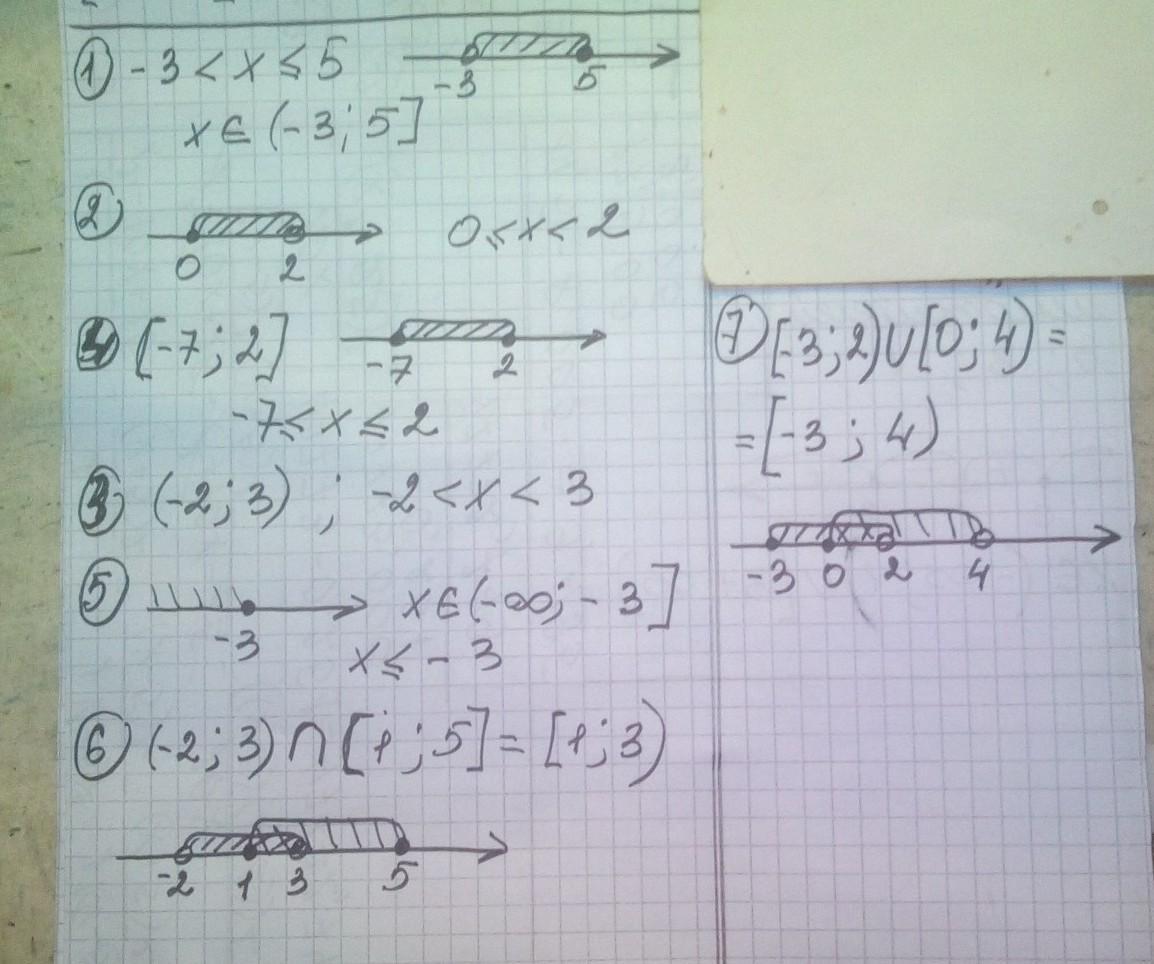 ① -3 < x ≤ 5
-3 5
x ∈ (-3; 5]
② 0 ≤ x < 2
0 2
④ [-7; 2]
-7 2
-7 ≤ x ≤ 2
③ (-2; 3) ; -2 < x < 3
⑤ x ∈ (-∞; -3]
-3
x ≤ -3
⑥ (-2; 3) ∩ [1; 5] = [1; 3)
-2 1 3 5
⑦ [-3; 2) ∪ [0; 4) =
= [-3; 4)
-3 0 2 4